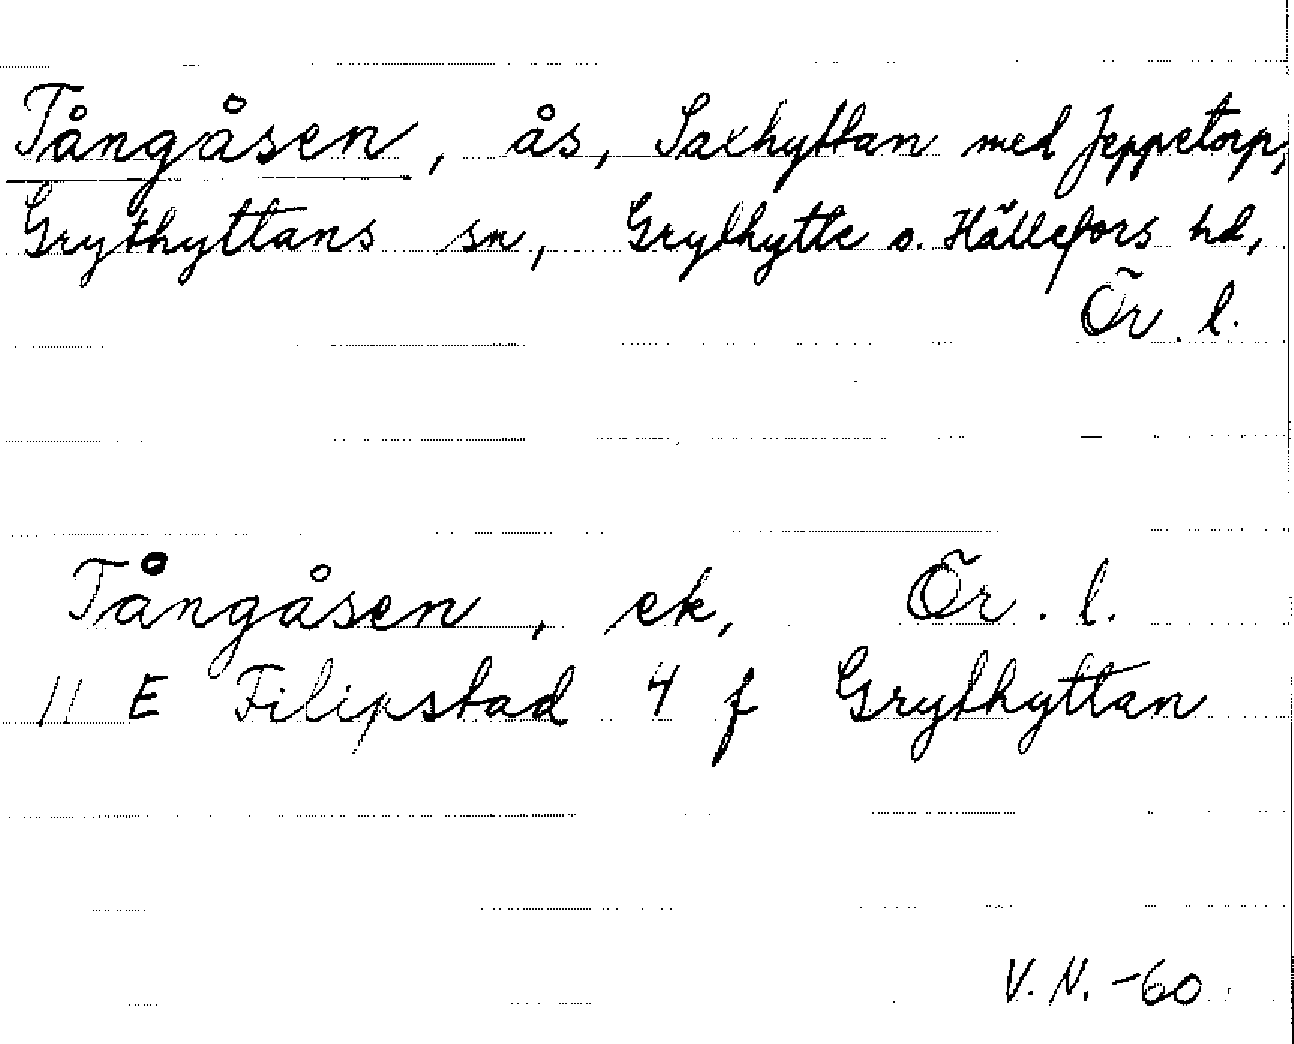 Tångåsen, ås, Saxhyttan med Jeppetorp,
Grythyttans sn, Grythytte o. Hällefors hd,
Ör. l.
Tångåsen, ek, Ör. l.
11 E Filipstad 4 f Grythyttan
V. N. -60